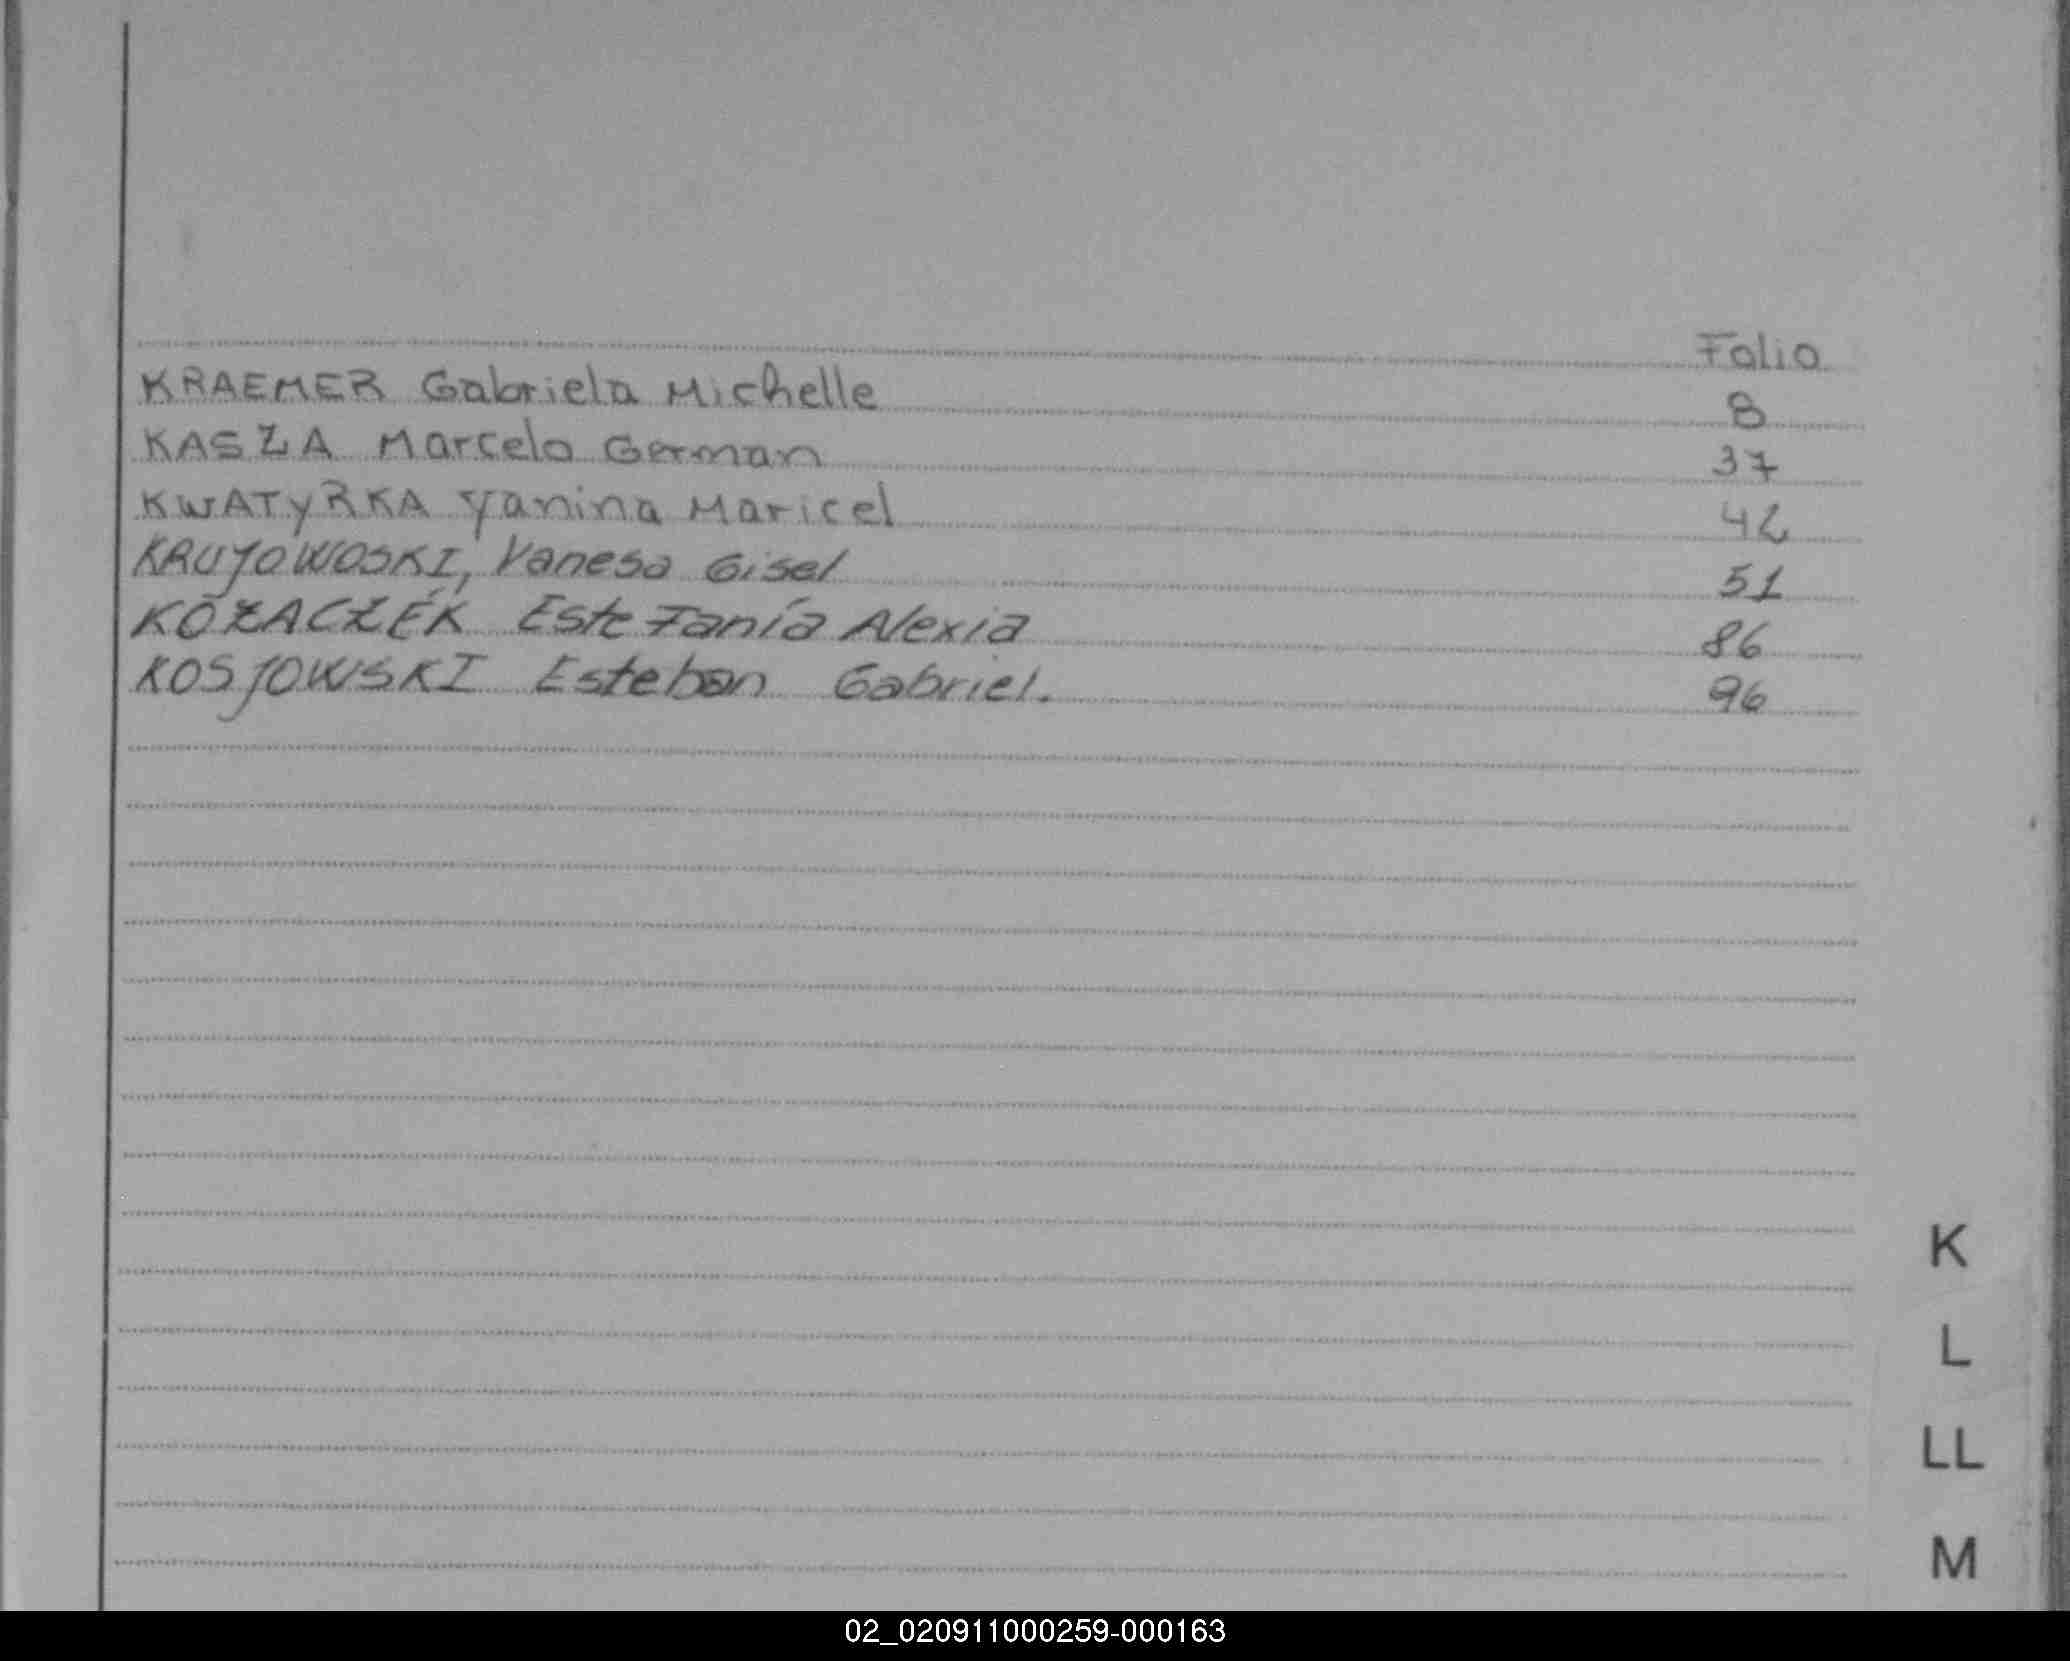 Folio
KRAEMER Gabriela Michelle 8
KASZA Marcelo German 37
KWATYRKA Yanina Maricel 42
KRUJOWOSKI, Vanesa Gisel 51
KOZACZEK Estefanía Alexia 86
KOSJOWSKI Esteban Gabriel. 96
K
L
LL
M
02_020911000259-000163